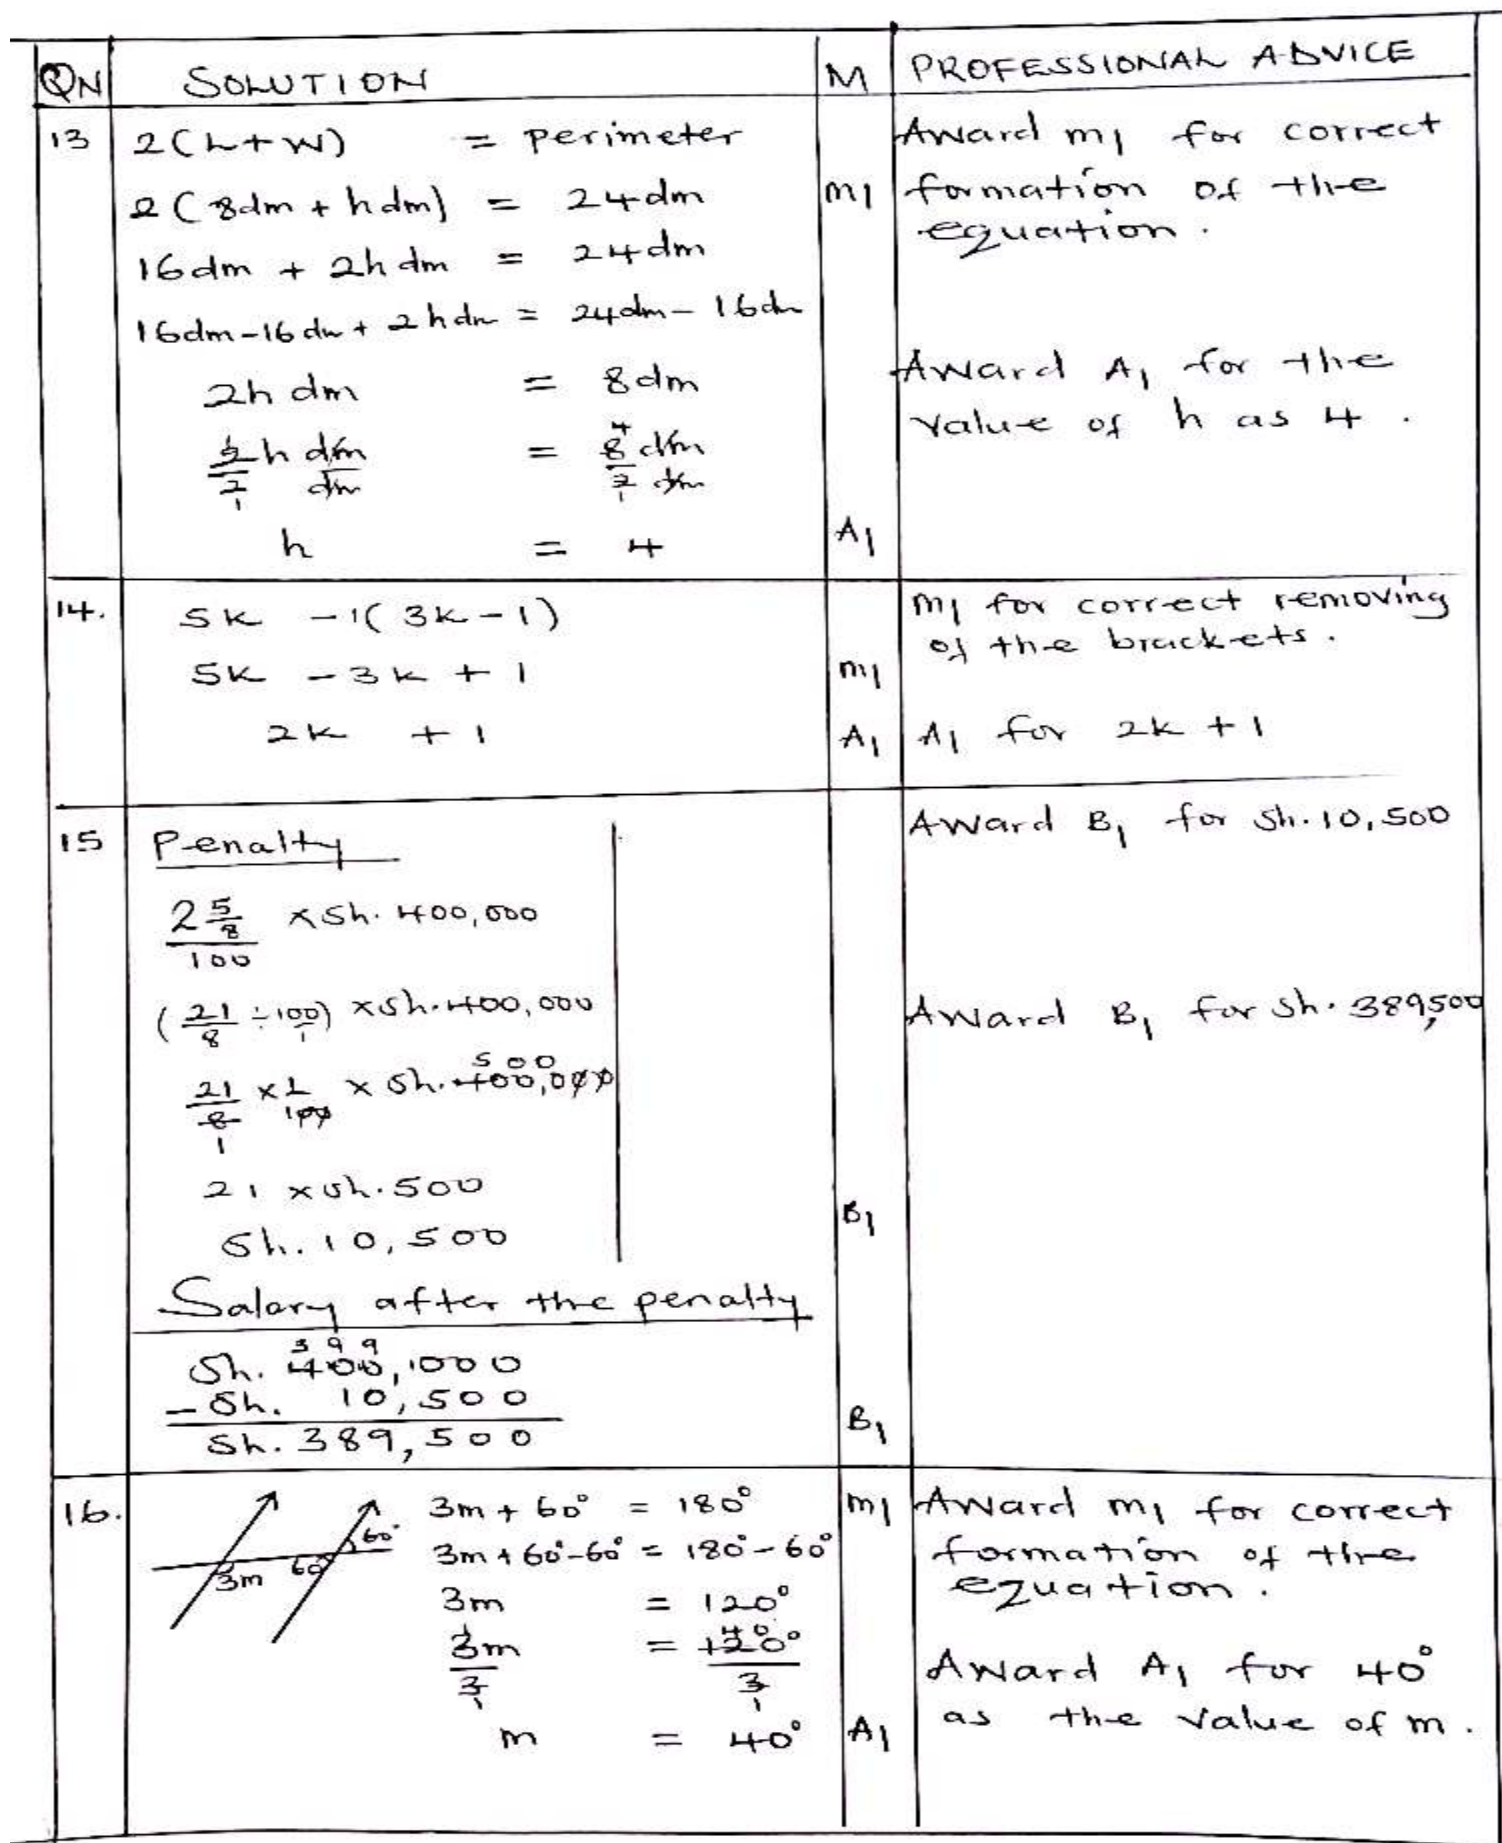 QN SOLUTION M PROFESSIONAL ADVICE
13 2(L+W) = perimeter
2(8dm + hdm) = 24dm M1
16dm + 2hdm = 24dm
16dm-16dm+2hdm = 24dm-16dm
2h dm = 8dm
2h dm/2 dm = 8dm/2 dm
h = 4 A1
Award M1 for correct
formation of the
equation.
Award A1 for the
value of h as 4.
14. 5k -1(3k-1)
5k -3k + 1 M1
2k + 1 A1
M1 for correct removing
of the brackets.
A1 for 2k + 1
15 Penalty
2 5/8/100 x Sh. 400,000
(21/8 ÷ 100/1) x Sh. 400,000
21/8 x 1/100 x Sh. 400,000
21 x Sh. 500
Sh. 10,500 B1
Salary after the penalty
Sh. 400,000
- Sh. 10,500
Sh. 389,500 B1
Award B1 for Sh. 10,500
Award B1 for Sh. 389,500
16.
3m 60° 60°
3m + 60° = 180° M1
3m+60°-60° = 180°-60°
3m = 120°
3m/3 = 120°/3
m = 40° A1
Award M1 for correct
formation of the
equation.
Award A1 for 40°
as the value of m.